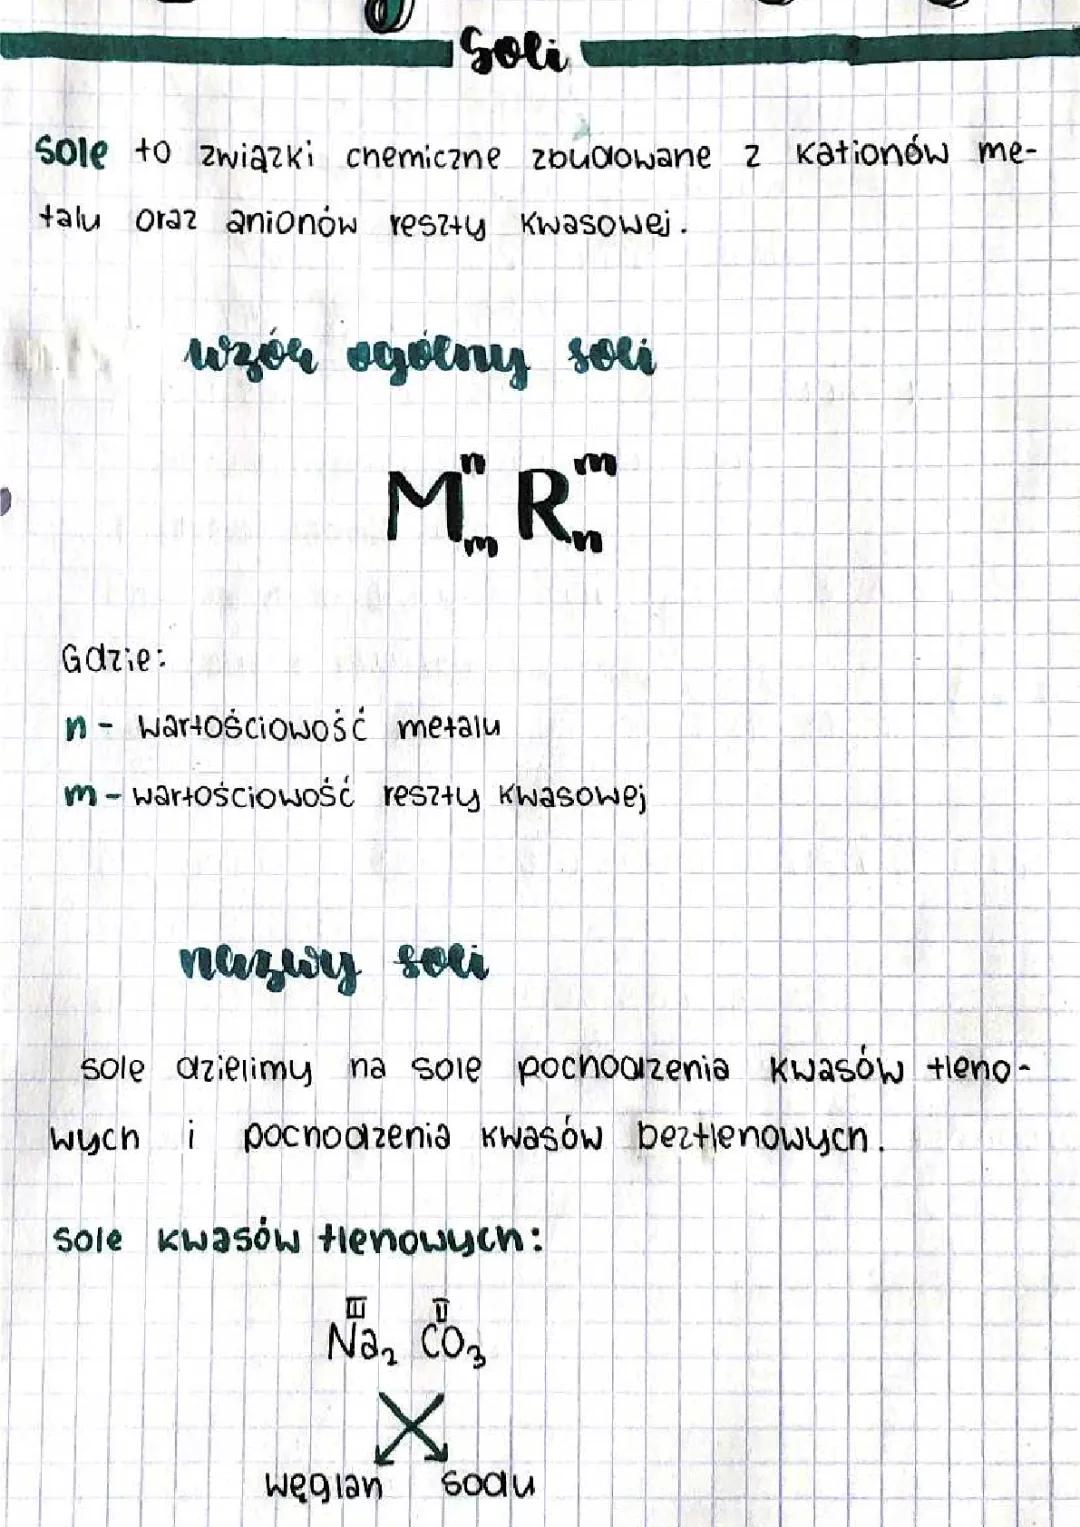 Soli
sole to związki chemiczne zbudowane z kationów me-
talu oraz anionów reszty kwasowej.
wzór ogólny soli
Mⁿₘ Rᵐₙ
Gdzie:
n - wartościowość metalu
m - wartościowość reszty kwasowej
nazwy soli
sole dzielimy na sole pochodzenia kwasów tleno-
wych i pochodzenia kwasów beztlenowych.
sole kwasów tlenowych:
III II
Na₂ CO₃
węglan sodu